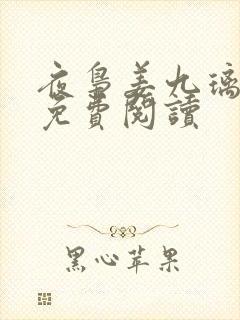 夜梟姜九璃
免費閱讀
黑心苹果